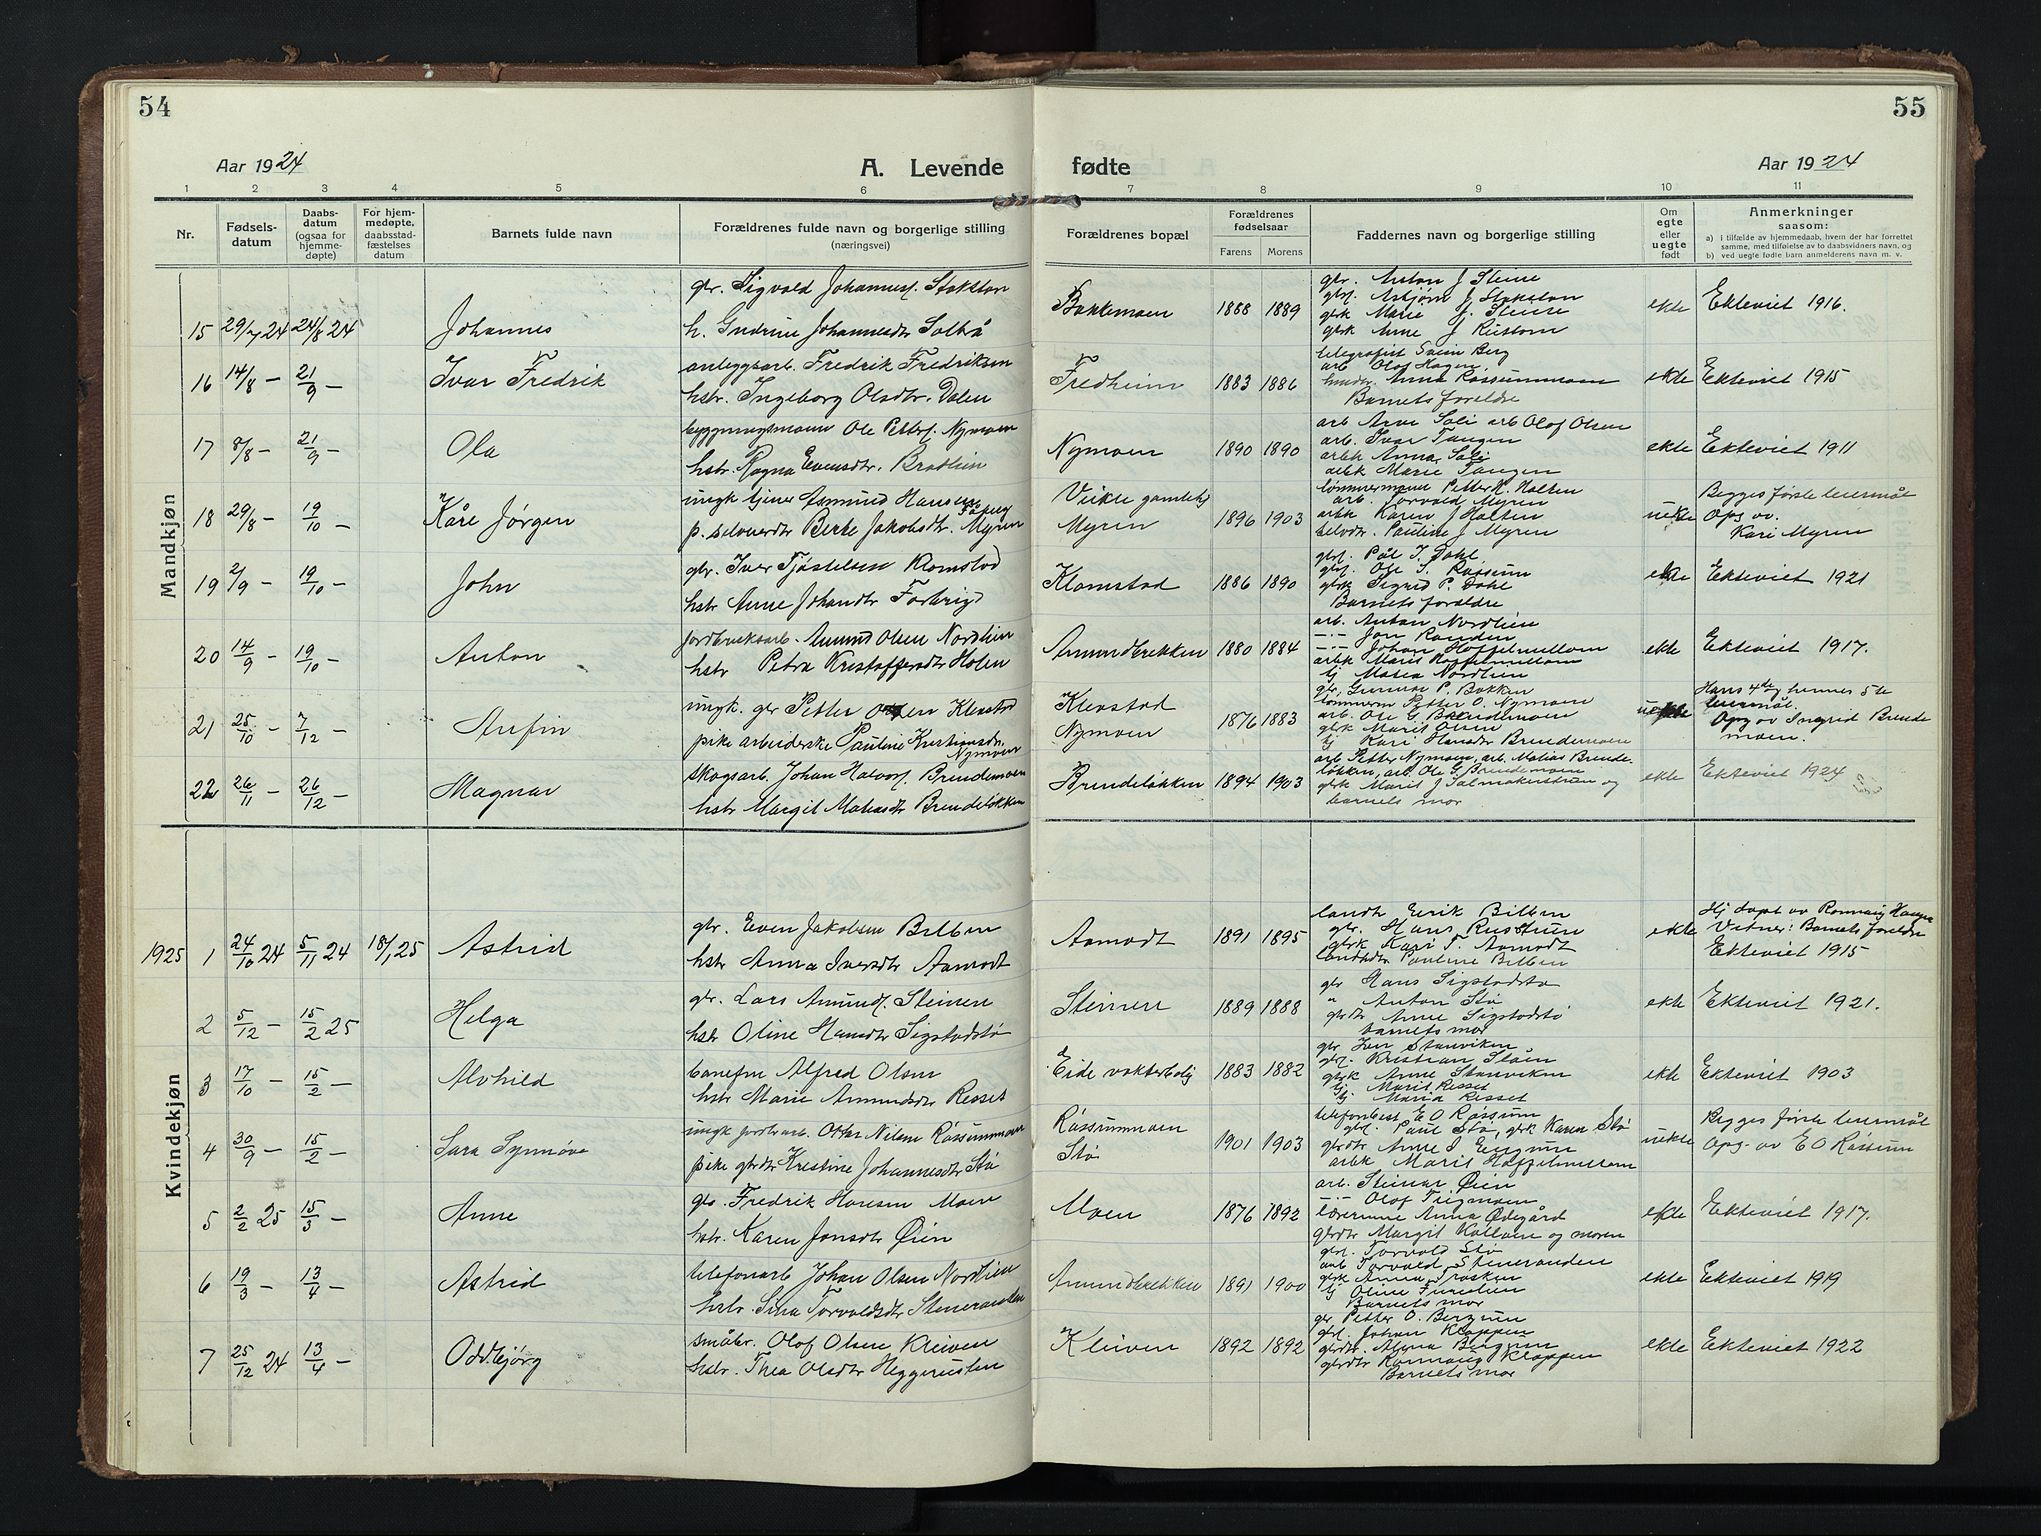 54
55
Aar 1924
A. Levende
fødte
Aar 1924
1 2 3 4 5 6 7 8 9 10 11
Nr.
Fødsels-
datum
Daabs-
datum
(ogsaa for
hjemme-
døpte)
For hjem-
medøpte,
daabsstad-
fæstelses
datum
Barnets fulde navn
Forældrenes fulde navn og borgerlige stilling
(næringsvei)
Forældrenes bopæl
Forældrenes
fødselsaar
Farens Morens
Faddernes navn og borgerlige stilling
Om
egte
eller
uegte
født
Anmerkninger
saasom:
a) i tilfælde av hjemmedaab, hvem der har forrettet
samme, med tilføielse av to daabsvidners navn, og
b) ved uegte fødte barn anmelderens navn m. v.
Mandkjøn
gbr. Sigvald Johannesf. Stokston
15 29/7 24 24/8 24 Johannes
h. Gudrine Johannesdtr
1888 1889
gbr. Anton J Steine
gbrk Marie J. Steine
gbrk Anne J Rustom
ekte Ekteviet 1916.
16 14/8 – 21/9 – Ivar Fredrik
anleggsarb. Fredrik Fredriksen
hstr. Ingeborg Olsdtr. Dalen
Fredheim 1883 1886
telegrafist Svein Berg
arb Olof Hagen
Anna Råssummoen
Barnets foreldre
ekte Ekteviet 1915
17 8/8 – 21/9 – Ola
bygningsmann Ole Petterf. Nymoen
hstr. Ragna Evensdtr.
Nymoen 1890 1890
arb Arne Sali arb Olof Olsen
arb. Ivar Tangen
arbk Anna Sali
arbk Marie Tangen
ekte Ekteviet 1911
18 29/8 – 19/10 – Kåre Jørgen
ungk tjener Asmund Hansen
p. selveierdtr Berte Jakobsdtr. Myren
Veikle gamlehj
Myren 1896 1903
tømmermann Petter H. Holten
arb. Torvald Myren
arbk Karen J Holten
selvdtr. Pauline J Myren
uekte Begges første leiermål
Opg av
Kari Myren
19 2/9 – 19/10 – John
gbr. Iver Tjøstelsen Klomstad
hstr Anne Johandtr Forbrigd
Klomstad 1886 1890
gbf. Pål I. Dahl
gbf. Ole S. Råssum
gbrk Sigrid P. Dahl
Barnets foreldre
ekte Ekteviet 1921
20 14/9 – 19/10 – Anton
jordbruksarb. Amund Olsen Nordlien
hstr Petra Kristoffersdtr Holen
Amundbrekken 1880 1884
arb. Anton Nordlien
–"– Jon Randen
–"– Johan Høffelmellom
arbk Marit Høffelmellom
tj Matea Nordlien
ekte Ekteviet 1917.
21 25/10 – 7/12 – Arfin
ungk. gbr Petter Olsen Klevstad
pike arbeiderske Pauline Kristiansdtr.
Nymoen
Klevstad
Nymoen 1876 1883
gbr. Gunnar P. Bakken
tømmerm Petter O. Nymoen
arb. Ole G. Brendemoen
gbrk Marit Olsen
tj Kari Hansdtr Brendemoen
uekte Hans 4de og hennes 5te
leiermål.
Opg av Ingrid Brende
moen.
22 26/11 – 26/12 – Magnar
skogsarb. Johan Halvorf. Brendemoen
hstr Margit Matiasdtr Brendeløkken
Brendeløkken 1894 1903
arb Petter Nymoen, arb. Matias Brende-
løkken, arb. Ole G. Brendemoen
gbrk Marit J Salmakerstuen og
barnets mor
ekte Ekteviet 1924
Kvindekjøn
1925
1 24/10 24 5/11 24 18/1 25 Astrid
gbr. Even Jakobsen Bilben
hstr Anna Iversdtr Aamodt
Aamodt 1891 1895
landh Eirik Bilben
gbr. Hans Rustuen
gbrk Kari T. Aamodt
landhdtr Pauline Bilben
ekte Hj døpt av Rønnaug Haugen
Vitner: Barnets foreldre
Ekteviet 1915
2 5/12 – 15/2 25 Helga
gbr. Lars Amundf. Steinen
hstr Oline Hansdtr Sigstadstø
Steinen 1889 1888
gbr Hans Sigstadstø
" Anton Stø
gbrdtr Anne Sigstadstø
barnets mor
ekte Ekteviet 1921.
3 17/10 – 15/2 – Alvhild
banefm Alfred Olsen
hstr Marie Amundsdtr Resset
Eide vokterbolig 1883 1882
gbr Jon Stanviken
gbf. Kristian Slåen
gbrk Anne Stanviken
tj Marit Resset
tj Maria Resset
ekte Ekteviet 1903
4 30/9 – 15/2 – Sara Synnøve
ungk jordbrarb. Ottar Nilsen Råssummoen
pike gbrdtr Kristine Johannesdtr Stø
Råssummoen
Stø 1901 1903
telefonbest E O Råssum
gbf. Paul Stø, gbrk Karen Stø
gbrdtr Anne I Engum
arbk Marit Høffelmellom
uekte Begges første leiermål
Opg. av E O Råssum
5 2/2 25 15/3 – Anne
gbr. Fredrik Hansen Moen
hstr. Karen Jonsdtr Øien
Moen 1876 1892
arb. Steinar Øien
–"– Olof Trigmoen
lærerinne Anna Ødegård
gbrdtr Margit Kolloen og moren
ekte Ekteviet 1917.
6 19/3 – 13/4 – Astrid
telefonarb Johan Olsen Nordlien
hstr. Sina Torvaldsdtr Steneranden
Amundbrekken 1891 1900
gbf. Torvald Stø
arb Torvald Steneranden
gbrk Anna Trøsken
tj Oline Furulien
Barnets mor
ekte Ekteviet 1919
7 25/12 24 13/4 – Oddbjørg
småbr. Olof Olsen Kleiven
hstr. Thea Olsdtr Heggerusten
Kleiven 1892 1892
gbr Petter O. Bergum
gbf. Johan Kloppen
gbrdtr. Alma Bergum
gbrdtr Rønnaug Kloppen
Barnets mor
ekte Ekteviet 1922